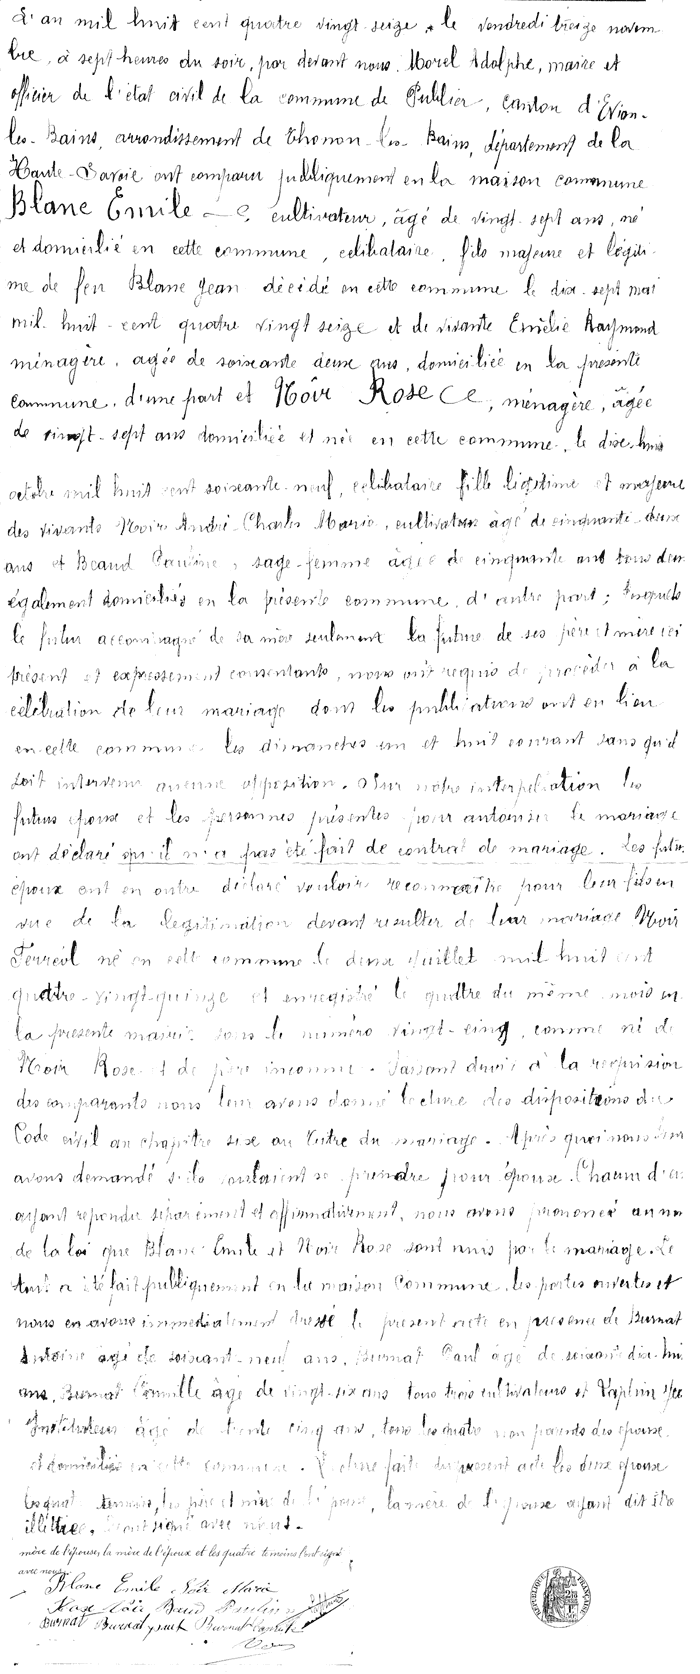 L'an mil huit cent quatre vingt-seize, le vendredi treize novem
bre, à sept heures du soir, par devant nous, Morel Adolphe, maire et
officier de l'état civil de la commune de Publier, canton d'Evian-
les-Bains, arrondissement de Thonon-les-Bains, département de la
Haute-Savoie ont comparu publiquement en la maison commune
Blanc Emile, cultivateur, âgé de vingt-sept ans, né
et domicilié en cette commune, célibataire, fils majeur et légiti-
me de feu Blanc Jean décédé en cette commune le dix-sept mai
mil-huit-cent quatre vingt seize et de vivante Emélie Raymond
ménagère, agée de soixante deux ans, domiciliée en la présente
commune, d'une part et Noir Rose, ménagère, âgée
de vingt-sept ans domiciliée et née en cette commune, le dix-huit
octobre mil huit cent soixante-neuf, célibataire fille légitime et majeure
des vivants Noir André-Charles Marie, cultivateur âgé de cinquante-deux
ans et Beaud Pauline, sage-femme âgée de cinquante ans tous deux
également domiciliés en la présente commune, d'autre part; lesquels
le futur accompagné de sa mère seulement la future de ses père et mère ici
présent et expressément consentants, nous ont requis de procéder à la
célébration de leur mariage dont les publications ont eu lieu
en cette commune les dimanches un et huit courant sans qu'il
soit intervenu aucune opposition. Sur notre interpellation les
futurs époux et les personnes présentes pour autoriser le mariage
ont déclaré qu'il n'a pas été fait de contrat de mariage. Les futurs
époux ont en outre déclaré vouloir reconnaître pour leur fils en
vue de la légitimation devant résulter de leur mariage Noir
Ferréol né en cette commune le deux Juillet mil huit cent
quatre-vingt-quinze et enregistré le quatre du même mois en
la présente mairie sous le numéro vingt-cinq, comme né de
Noir Rose et de père inconnu. Faisant droit à la requisition
des comparants nous leur avons donné lecture des dispositions du
Code civil au chapitre six au titre du mariage. Après quoi nous leur
avons demandé s'ils voulaient se prendre pour époux. Chacun d'eux
ayant répondu séparément et affirmativement, nous avons prononcé au nom
de la loi que Blanc Emile et Noir Rose sont unis par le mariage. Le
tout a été fait publiquement en la maison Commune, les portes ouvertes et
nous en avons immédiatement dressé le présent acte en présence de Burnat
Antoine âgé de soixante-neuf ans, Burnat Paul âgé de soixante dix-huit
ans, Burnat Camille âgé de vingt-six ans tous trois cultivateurs et
Instituteur âgé de trente cinq ans, tous les quatre non parents des époux
et domiciliés en cette commune. Lecture faite du présent acte les deux époux
les quatre témoins, les père et mère de l'époux, la mère de l'épouse ayant dit être
illettrée, l'ont signé avec nous.
mère de l'épouse, la mère de l'époux et les quatre temoins l'ont signé
avec nous.
Blanc Emile Noir Marie
Rose Noir Beaud Pauline
Burnat Burnat paul Burnat Camille
RÉPUBLIQUE FRANÇAISE